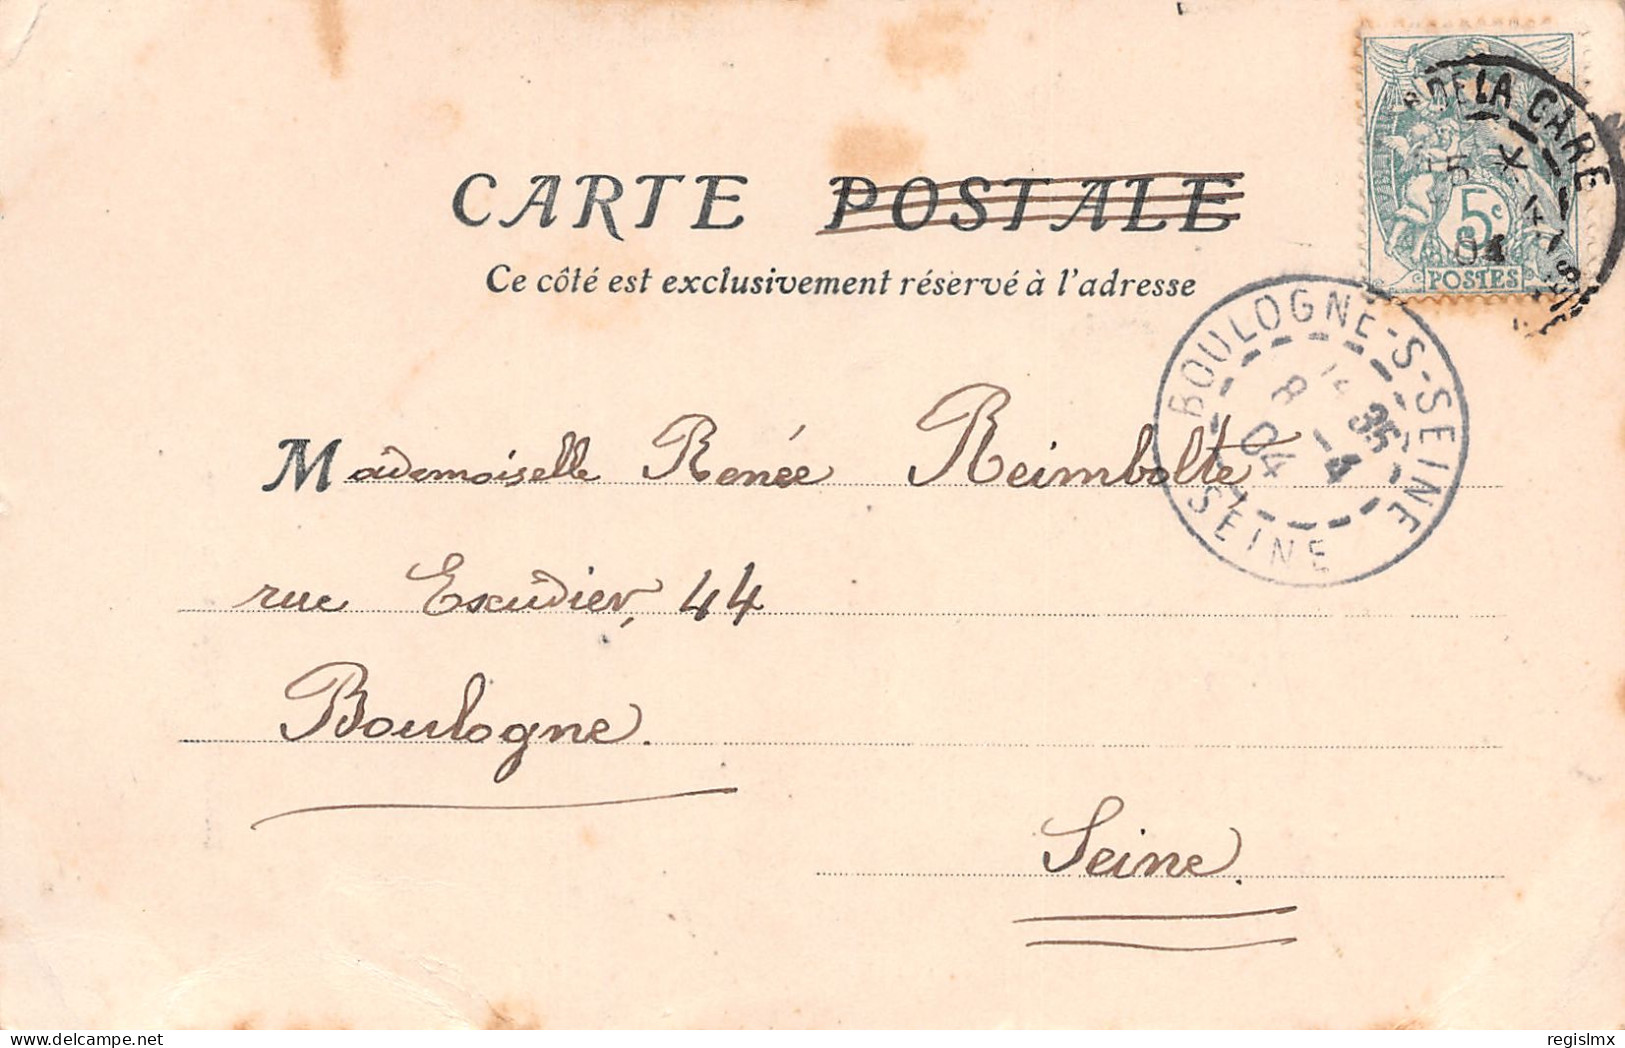 CARTE POSTALE
Ce côté est exclusivement réservé à l'adresse
5c
POSTES
DE LA GARE
04
BOULOGNE-S-SEINE
8 -4
04
35
SEINE
Mademoiselle Renée Reimbolte
rue Escudier, 44
Boulogne.
Seine.
regislmx